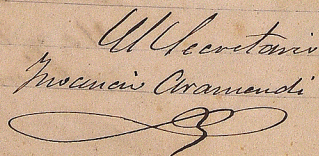 El Secretario
Inocencio Aramendi